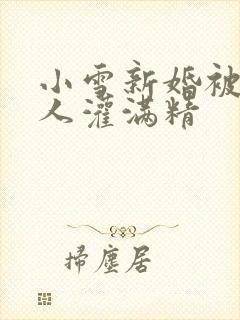 小雪新婚被
人灌满精
掃塵居